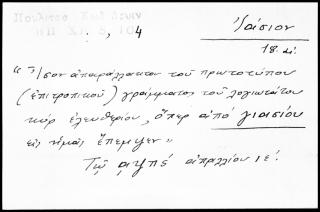 Ἰάσιον
, 4
18. αἰ.
"Ἴσον ἀπαράλλακτον τοῦ πρωτοτύπου
(ἐπιτροπικοῦ) γράμματος τοῦ λογιωτάτου
κὺρ ἐλευθερίου, ὅπερ ἀπό γιασίου
εἰς ἡμᾶς ἔπεμψεν"
Τῷ αψπέ ἀπριλλίου ιέ.